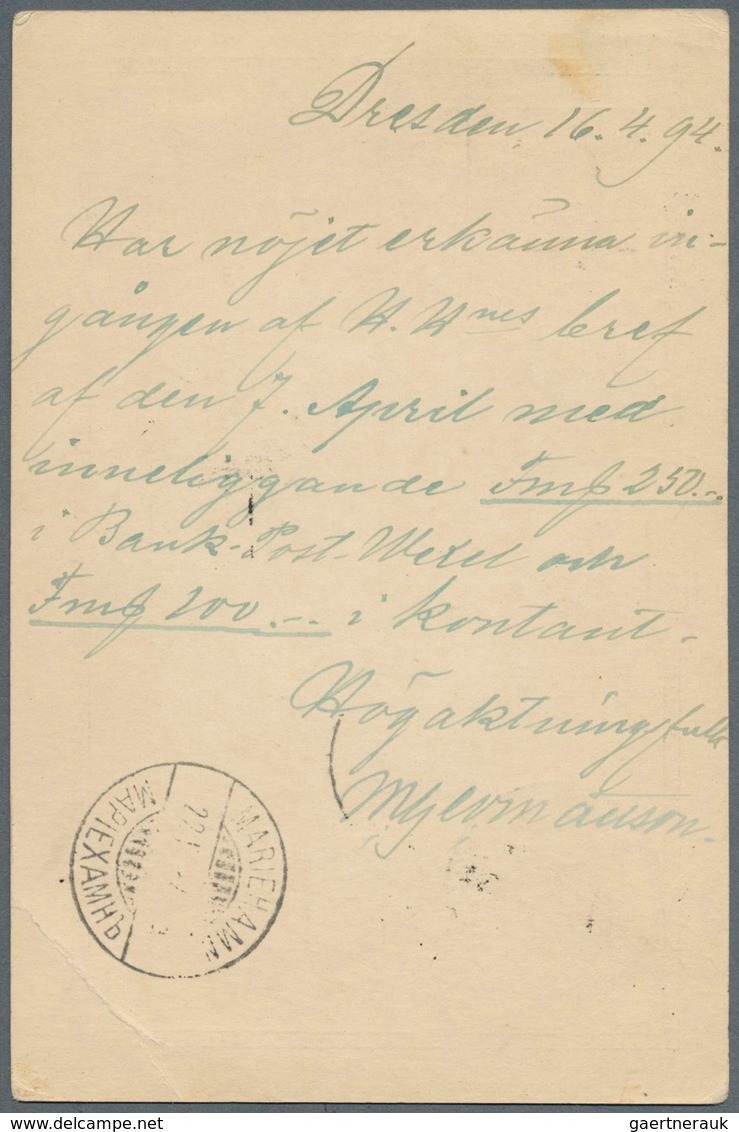 Dresden 16.4.94.
Har nöjet erkänna in-
gången af H. Hnes bref
af den 7. April med
inneliggande Fmf 250.--
i Bank-Post-Wexel och
Fmf 200.-- i kontant.
Högaktningsfullt
MARIEHAMN
МАРІЕХАМНЪ
gaertnerauk @ delcampe.net